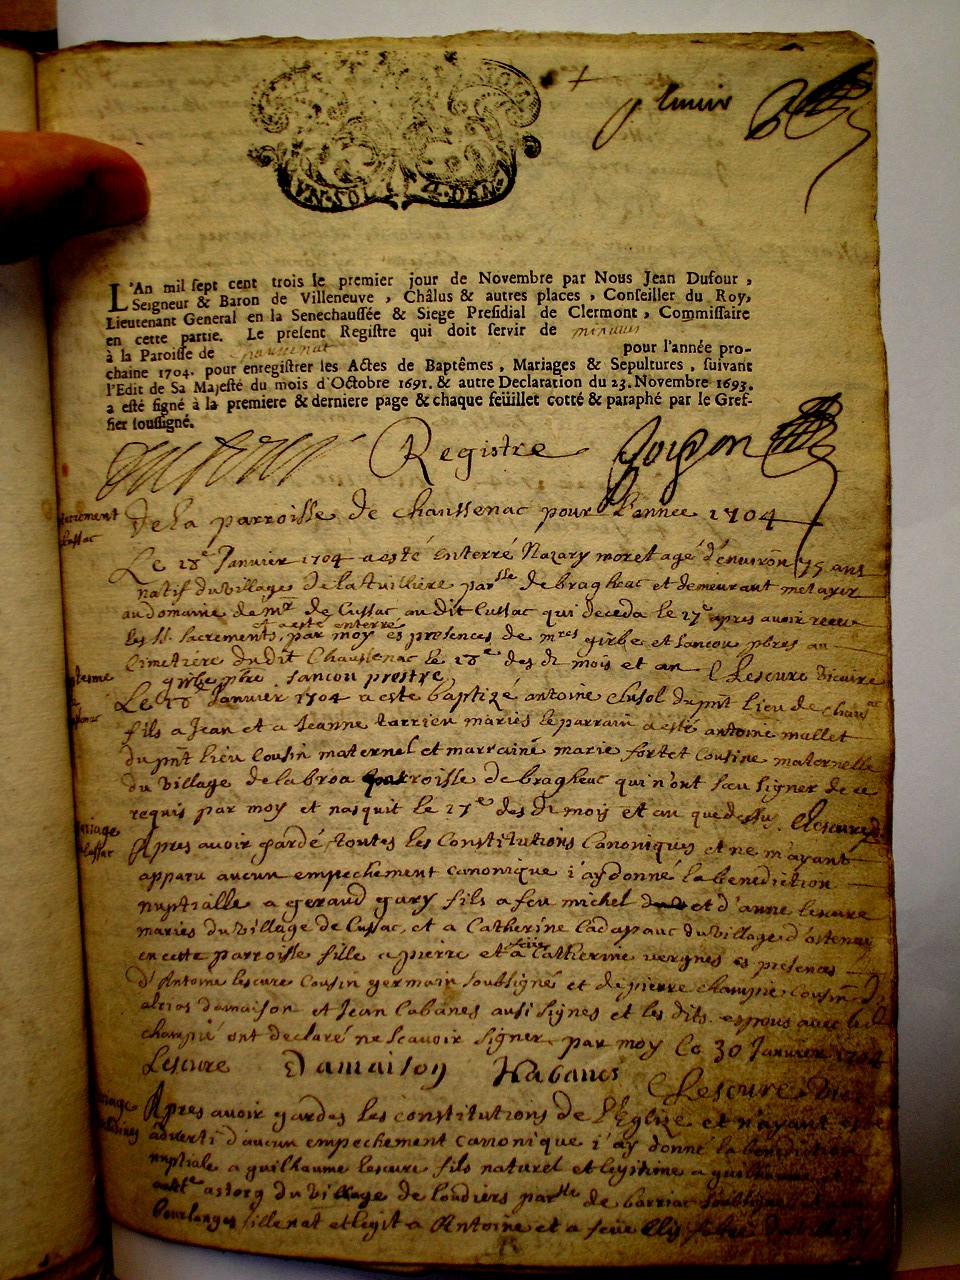 UN·SOL 4·DEN·
L'An mil sept cent trois le premier jour de Novembre par Nous Jean Dufour,
Seigneur & Baron de Villeneuve, Châlus & autres places, Conseiller du Roy,
Lieutenant General en la Senechaussée & Siege Presidial de Clermont, Commissaire
en cette partie. Le present Registre qui doit servir de minuttes
à la Paroisse de Chaussenat pour l'année pro-
chaine 1704. pour enregistrer les Actes de Baptêmes, Mariages & Sepultures, suivant
l'Edit de Sa Majesté du mois d'Octobre 1691. & autre Declaration du 23. Novembre 1693.
a esté signé à la premiere & derniere page & chaque feüillet cotté & paraphé par le Gref-
fier soussigné.
Registre
de la parroisse de Chaussenac pour L'annee 1704
Cussac
Le 18e Janvier 1704 a esté Enterré Nazary moret agé d'environ 75 ans
natif du village de la tuilliere parsse de bragheac et demeurant metayer
au domaine de mr de Cussac au dit Cussac qui deceda le 17e apres avoir receu
et a esté enterré
les st. sacrements, par moy es presences de mres girbe et sancou pbres au
Cimetiére du dit Chaussenac le 18e des dt mois et an Lescure Vicaire
girbe pbre sancou prestre
Le 18e Janvier 1704 a este baptizé antoine Clusol du pnt lieu de
fils a Jean et a Jeanne tarrieu mariés le parrain a esté antoine mallet
du pnt lieu Cousin maternel et marraine marie fortet cousine maternelle
du village de la broa parroisse de bragheac qui n'ont sceu signer de ce
requis par moy et nasquit le 17e des dt mois et an que dessus. Lescure
mariage
Cussac
Apres avoir gardé toutes les Constitutions Canoniques et ne m'ayant
apparu aucun empechement canonique j'ay donné la benediction
nuptialle a geraud gary fils a feu michel et d'anne lescure
mariés du village de Cussac, et a Catherine Ladapauc du village d'ostenac
en cette parroisse fille a pierre et a feüe Catherine vergnes es presences
d'Antoine lescure Cousin germain soubsigné et de pierre champié Cousin
alias damaison et Jean Cabanes aussi signés et les dits espous avec led
champié ont declaré ne scavoir signer par moy Le 30 Janvier 1704
Lescure Damaison Kabanes Lescure Vic
Apres avoir gardés les constitutions de l'Eglize et n'ayant esté
adverti d'aucun empechement canonique j'ay donné la benediction
nuptiale a guilhaume lescure fils naturel et legitime a guilhaume et
astorg du village de loudiers parsse de barriac soubsigné et
fille nat et legit a Antoine et a feüe